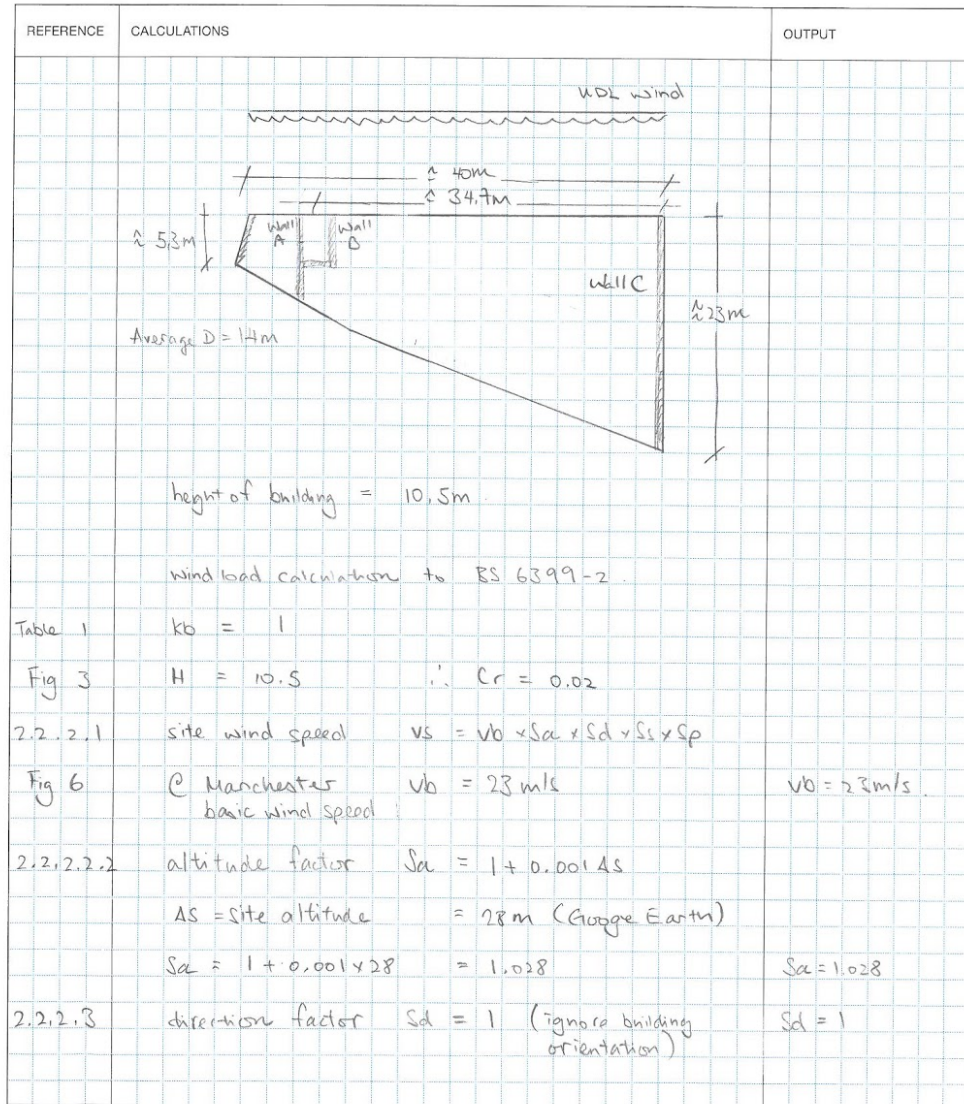 REFERENCE CALCULATIONS OUTPUT
UDL wind
≈ 40m
≈ 34.7m
≈ 5.3m
Wall A
Wall B
Wall C
≈ 23m
Average D = 14m
height of building = 10.5m
wind load calculation to BS 6399-2.
Table 1 kb = 1
Fig 3 H = 10.5 ∴ Cr = 0.02
2.2.2.1 site wind speed vs = vb × Sa × Sd × Ss × Sp
Fig 6 @ Manchester vb = 23 m/s vb = 23m/s.
basic wind speed
2.2.2.2.2 altitude factor Sa = 1 + 0.001 ΔS
ΔS = site altitude = 28m (Googe Earth)
Sa = 1 + 0.001 × 28 = 1.028 Sa = 1.028
2.2.2.3 direction factor Sd = 1 (ignore building Sd = 1
orientation)